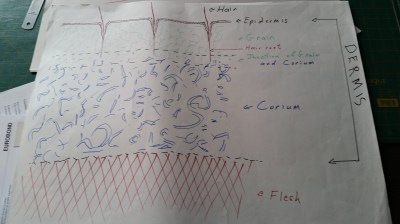 Hair
Epidermis
Grain
Hair root
Junction of Grain
and Corium
Corium
Flesh
DERMIS